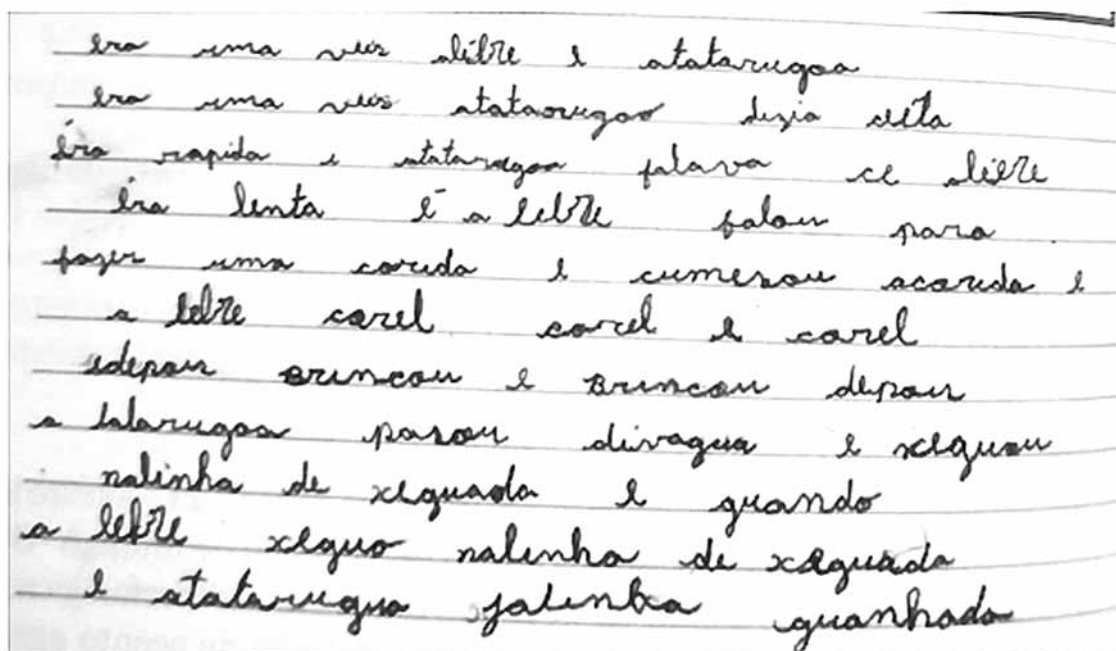 era uma veis alebre e atatarugaa
era uma veis atatarugaa dizia
éra rapida e atatarugaa falava ce alebre
éra lenta é a lebre falou para
fazer uma corida e cumesou acorida e
a lebre corel corel e corel
edepois Brincou e Brincou depois
a tatarugaa pasou divagua e xeguou
nalinha de xeguada e quando
a lebre xeguo nalinha de xeguada
e atatarugua jalinha guanhado